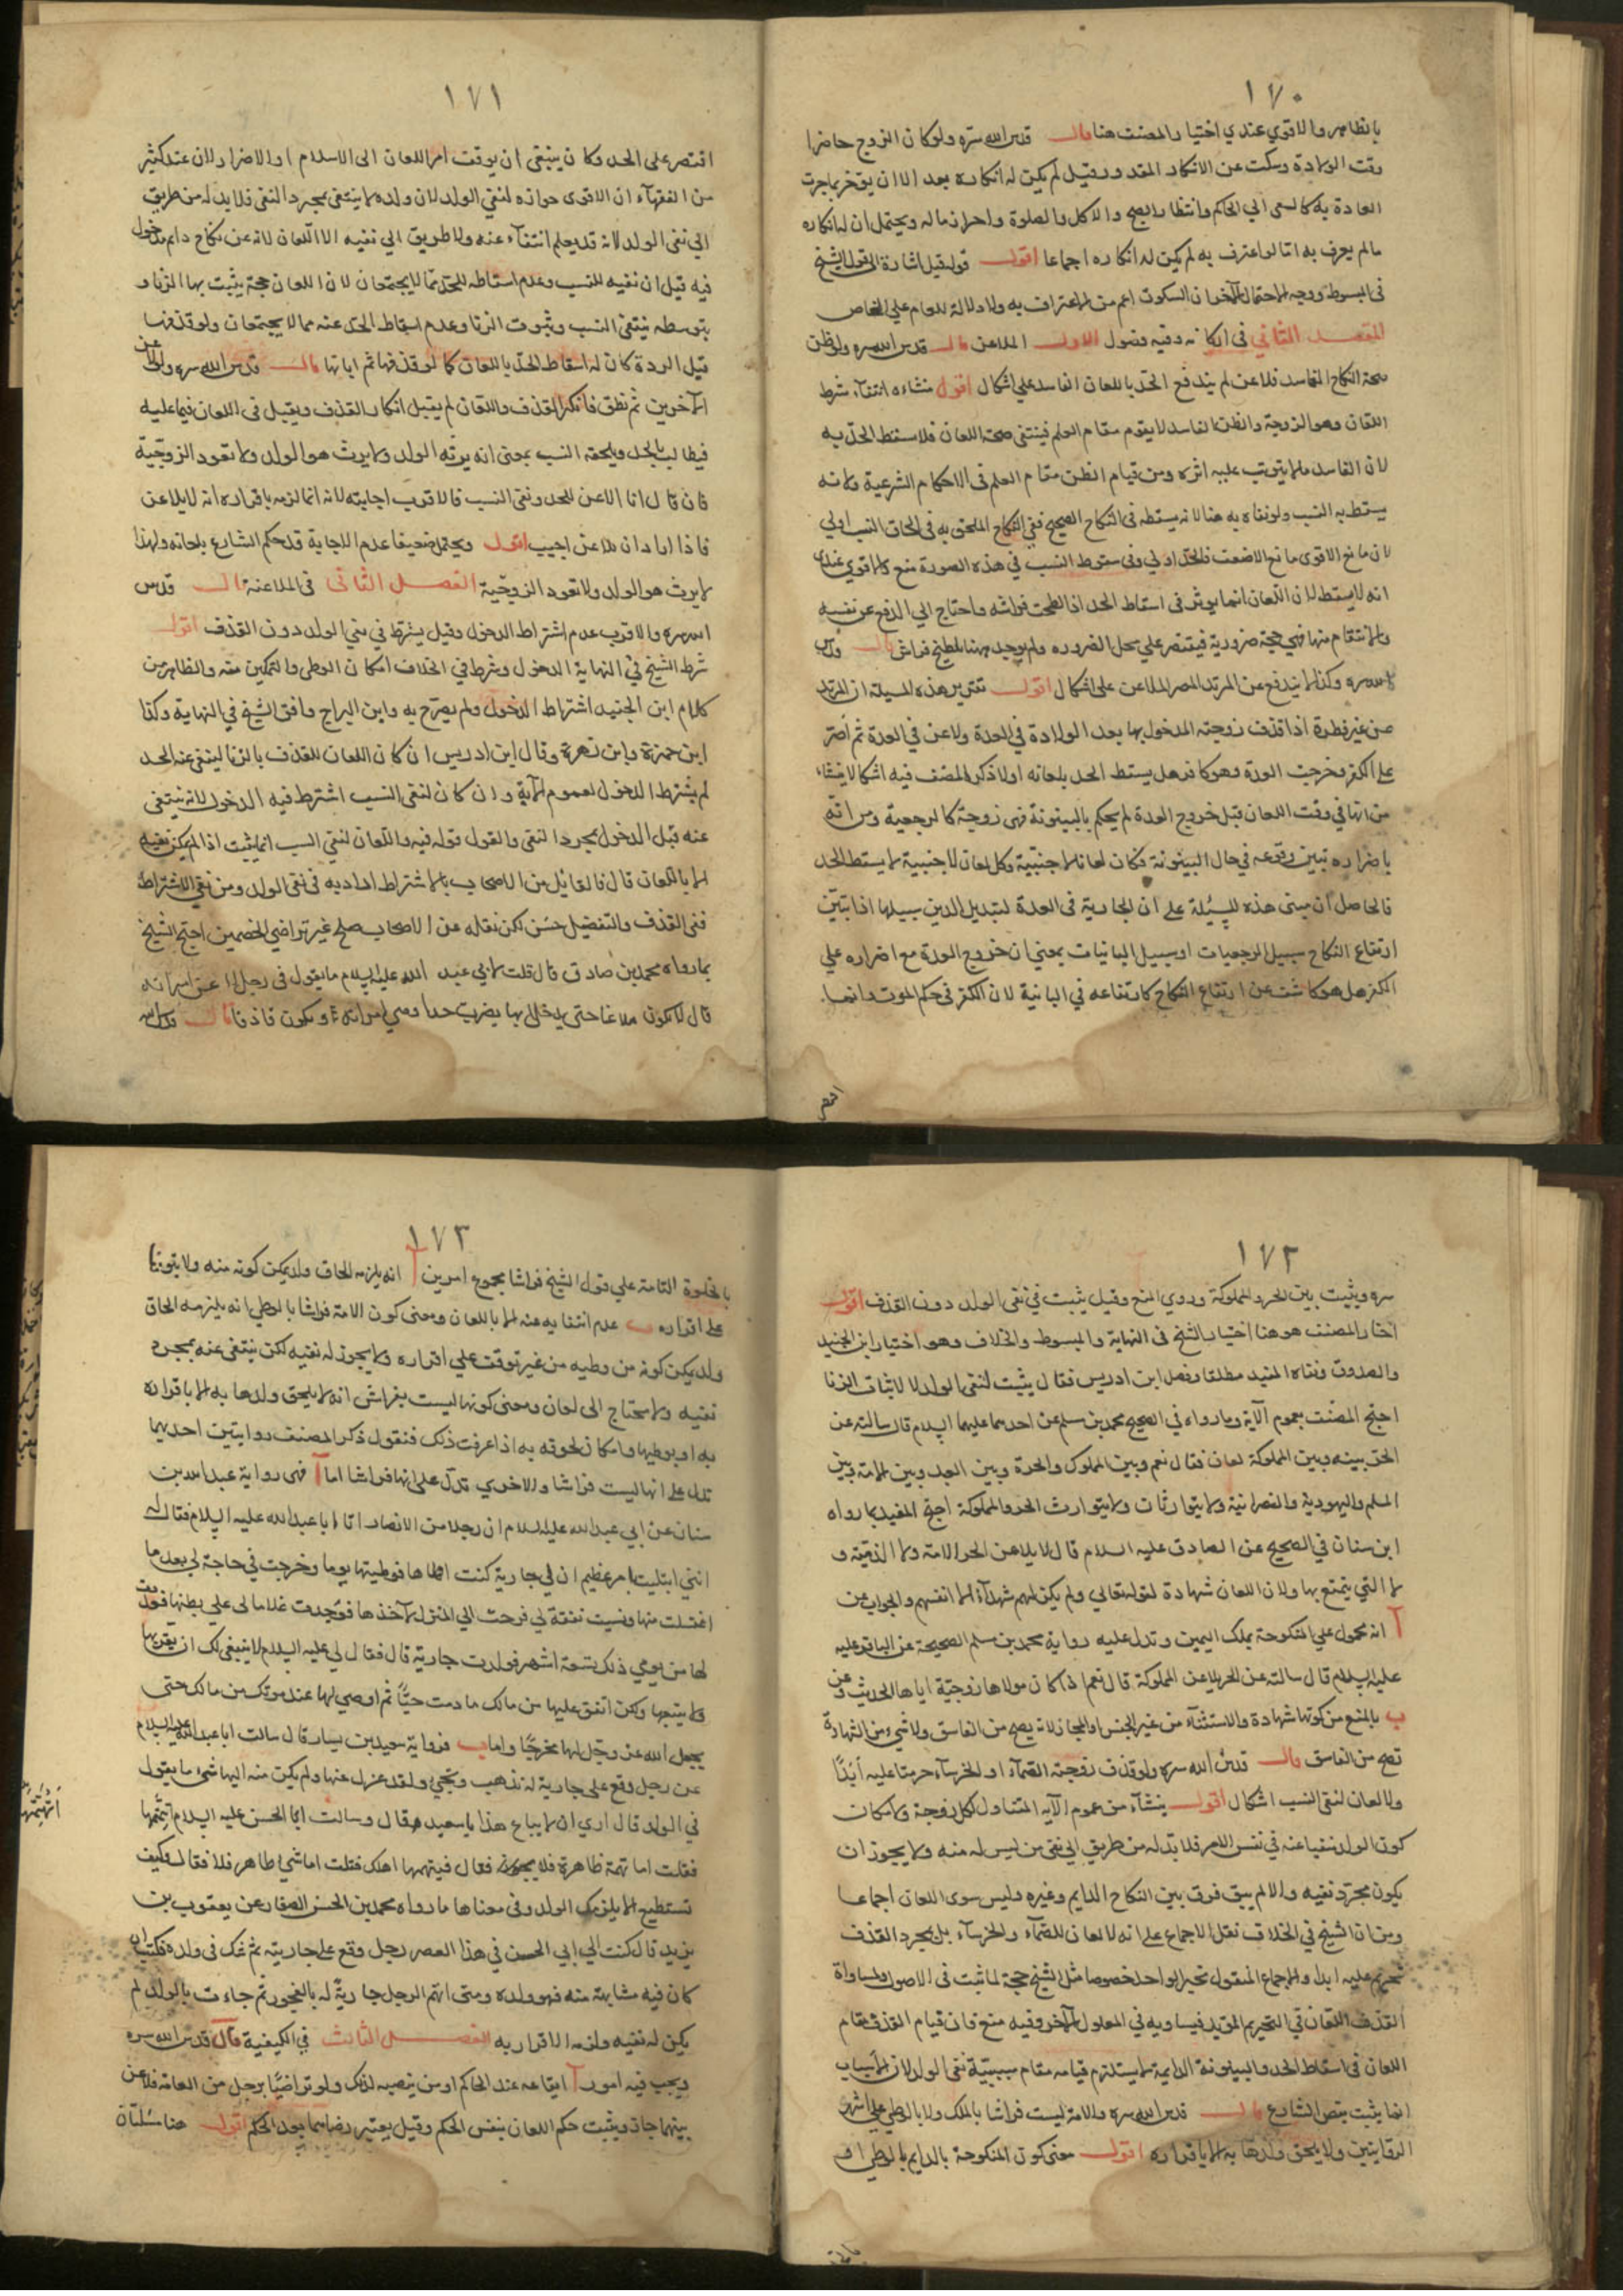 ١٧٠
بالظاهر والاقوي عندي اختيار المصنف هنا قال قدس الله سره ولو كان الزوج حاضرا
وقت الولادة وسكت عن الانكار المقدور قيل لم يكن له انكاره بعد الا ان يؤخر بما جرت
العادة به كالسعي الي الحاكم وانتظار الصبح والاكل والصلوة واحراز ماله ويحتمل ان له انكاره
مالم يعرف به اما لو اعترف به لم يكن له انكاره اجماعا اقول قوله قيل اشارة الى قول الشيخ
في المبسوط ووجه الاحتمال الآخر ان السكوت اعم من الاعتراف به ولا دلالة للعام علي الخاص
المقصد الثاني في اركانه وفيه فصول الاول الملاعن قال قدس الله سره ولو ظن
صحة النكاح الفاسد فلاعن لم يندفع الحد باللعان الفاسد علي اشكال اقول منشاءه انتفاء شرط
اللعان وهو الزوجية والظن الفاسد لا يقوم مقام العلم فينتفي صحة اللعان فلا سقط الحد به
لان الفاسد ما لا يترتب عليه اثره ومن قيام الظن مقام العلم في الاحكام الشرعية ولانه
يسقط به النسب ولو نفاه به هنا لانه يسقطه في النكاح الصحيح ففي النكاح الملحق به في الحاق النسب اولي
لان مانع الاقوى مانع الاضعف فالحد اولي وفي سقوط النسب في هذه الصورة منع والاقوي عندي
انه لا يسقط لان اللعان انما يوثر في اسقاط الحد اذا لطخت فراشه واحتاج الي الدفع عن نفسه
والانتقام منها فهي حجة ضرورية فيقتصر علي محل الضروره ولم يوجد ههنا ملطخ فراش قال قدس
الله سره وكذا لا يندفع عن المرتد المصر الملاعن على اشكال اقول تقرير هذه المسئلة ان المرتد
عن غير فطرة اذا قذف زوجته المدخول بها بعد الولادة في العدة ولاعن في العدة ثم اصر
على الكفر وخرجت العدة وهو كافر هل يسقط الحد بلعانه اولا ذكر المصنف فيه اشكالا ينشاء
من انها في وقت اللعان قبل خروج العدة لم يحكم بالبينونة فهي زوجة كالرجعية ومن انه
باصراره تبين وقوعه في حال البينونة فكان لعانا لاجنبية وكل لعان لاجنبية لا يسقط الحد
فالحاصل ان مبنى هذه المسئلة على ان الجارية في العدة لتبديل الدين سبيلها اذا تبين
ارتفاع النكاح سبيل الرجعيات او سبيل البائنات بمعني ان خروج العدة مع اصراره علي
الكفر هل هو كاشف عن ارتفاع النكاح كارتفاعه في البائنة لان الكفر في حكم الموت دائما
اقتصر
١٧١
اقتصر على الحد وكان ينبغي ان يوقف امر اللعان الى الاسلام او الاصرار لان عند كثير
من الفقهاء ان الاقوى جوازه لنفي الولد لان ولده لا ينتفي بمجرد النفي فلا بد له من طريق
الي نفي الولد لانه قد يعلم انتفاءه عنه ولا طريق الي نفيه الا اللعان لانه عن نكاح دايم مدخول
فيه قيل ان نفيه للنسب وعدم اسقاطه للحد مما لا يجتمعان لان اللعان حجة يثبت بها الزنا و
بتوسطه ينتفي النسب وثبوت الزنا وعدم اسقاط الحد عنه مما لا يجتمعان ولو قذفها
قبل الردة كان له اسقاط الحد باللعان كما لو قذفها ثم ابانها قال قدس الله سره ولو لاعن
الاخرس ثم نطق فانكر القذف واللعان لم يقبل انكار القذف ويقبل في اللعان فيما عليه
فيطالب بالحد ويلحقه النسب بمعنى انه يرثه الولد ولا يرث هو الولد ولا تعود الزوجية
فان قال انا الاعن للحد ونفي النسب فالاقرب اجابته لانه انما لزمه باقراره انه لا يلاعن
فاذا اراد ان يلاعن اجيب اقول ويحتمل ضعيفا عدم الاجابة قد حكم الشارع بلعانه ولهذا
لا يرث هو الولد ولا تعود الزوجية الفصل الثاني في الملاعنة قال قدس
الله سره والاقرب عدم اشتراط الدخول وقيل يشترط في نفي الولد دون القذف اقول
شرط الشيخ في النهاية الدخول وشرط في الخلاف امكان الوطي والتمكين منه والظاهر من
كلام ابن الجنيد اشتراط الدخول ولم يصرح به وابن البراج وافق الشيخ في النهاية وكذا
ابن حمزة وابن زهرة وقال ابن ادريس ان كان اللعان للقذف بالزنا لينفي عنه الحد
لم يشترط الدخول لعموم الآية وان كان لنفي النسب اشترط فيه الدخول لانه ينتفي
عنه قبل الدخول بمجرد النفي والقول قوله فيه واللعان لنفي النسب انما يثبت اذا لم يمكن نفيه
الا باللعان قال فالقائل من الاصحاب بالاشتراط اراد به في نفي الولد ومن نفي الاشتراط
ففي القذف والتفصيل حسن لكن نقله عن الاصحاب صلح غير تراضي الخصمين احتج الشيخ
بما رواه محمد بن صادق قال قلت لابي عبد الله عليه السلام ما يقول في رجل لاعن امراته
قال لا يكون ملاعنا حتى يدخل بها يضرب حدا وهي امراته ويكون قاذفا قال قدس الله
١٧٢
سره ويثبت بين الحر والمملوكة وروي المنع وقيل يثبت في نفي الولد دون القذف اقول
اختار المصنف هو هنا اختيار الشيخ في النهاية والمبسوط والخلاف وهو اختيار ابن الجنيد
والصدوق ونفاه المفيد مطلقا وفصل ابن ادريس فقال يثبت لنفي الولد لا لاثبات الزنا
احتج المصنف بعموم الآية وبما رواه في الصحيح محمد بن مسلم عن احدهما عليهما السلام قال سالته عن
الحر بينه وبين المملوكة لعان فقال نعم وبين المملوك والحرة وبين العبد وبين الامة وبين
المسلم واليهودية والنصرانية ولا يتوارثان ولا يتوارث الحر والمملوكة احتج المفيد بما رواه
ابن سنان في الصحيح عن الصادق عليه السلام قال لا يلاعن الحر الامة ولا الذمية و
لا التي يتمتع بها ولان اللعان شهادة لقوله تعالي ولم يكن لهم شهداء الا انفسهم والجواب عن
آ انه محمول علي المنكوحة بملك اليمين وتدل عليه رواية محمد بن مسلم الصحيحة عن الباقر عليه
عليه السلام قال سالته عن الحر يلاعن المملوكة قال نعم اذا كان مولاها زوجه اياها الحديث وعن
ب بالمنع من كونها شهادة والاستثناء من غير الجنس او المجاز لانه يصح من الفاسق ولا شيء من الشهادة
تصح من الفاسق قال قدس الله سره ولو قذف زوجته الصماء او الخرساء حرمتا عليه ابدا
ولا لعان لنفي النسب اشكال اقول ينشاء من عموم الآية المتناول لكل زوجة ولامكان
كون الولد منفيا عنه في نفس الامر فلا بد له من طريق الي نفي من ليس له منه ولا يجوز ان
يكون مجرد نفيه والا لم يبق فرق بين النكاح الدايم وغيره وليس سوى اللعان اجماعا
ومن ان الشيخ في الخلاف نقل الاجماع على انه لا لعان للصماء والخرساء بل بمجرد القذف
تحرم عليه ابدا والاجماع المنقول بخبر الواحد خصوصا مثل الشيخ حجة لما ثبت في الاصول ولمساواة
القذف اللعان في التحريم المؤبد فيساويه في المعلول الآخر وفيه منع فان قيام القذف مقام
اللعان في اسقاط الحد والبينونة الدايمة لا يستلزم قيامه مقام سببية نفي الولد لان الاسباب
انما يثبت بنص الشارع قال قدس الله سره والامة ليست فراشا بالملك ولا بالوطي علي اشهر
الروايتين ولا يلحق ولدها به الا باقراره اقول معنى كون المنكوحة بالدايم بالوطي او
١٧٣
بالخلوة التامة علي قول الشيخ فراشا مجموع امرين آ انه يلزمه الحاق ولد يمكن كونه منه ولا يتوقف
على اقراره ب عدم انتفائه عنه الا باللعان ومعنى كون الامة فراشا بالوطي انه يلزمه الحاق
ولد يمكن كونه من وطيه من غير توقف علي اقراره ولا يجوز له نفيه لكن ينتفي عنه بمجرد
نفيه ولا يحتاج الى لعان ومعنى كونها ليست بفراش انه لا يلحق ولدها به الا باقراره
به او بوطيها وامكان لحوقه به اذا عرفت ذلك فنقول ذكر المصنف روايتين احديهما
تدل على انها ليست فراشا والاخرى تدل على انها فراشا اما آ فهي رواية عبد الله بن
سنان عن ابي عبد الله عليه السلام ان رجلا من الانصار اتا ابا عبد الله عليه السلام فقال له
انني ابتليت بامر عظيم ان لي جارية كنت اطاها فوطيتها يوما وخرجت في حاجة لي بعد ما
اغتسلت منها ونسيت نفقة لي فرجعت الي المنزل لآخذها فوجدت غلاما لي على بطنها فعددت
لها من يومي ذلك تسعة اشهر فولدت جارية قال فقال لي عليه السلام لا ينبغي لك ان تقربها
ولا تبيعها ولكن انفق عليها من مالك ما دمت حيا ثم اوصي لها عند موتك من مالك حتى
يجعل الله عز وجل لها مخرجا واما ب فرواية سعيد بن يسار قال سالت ابا عبد الله عليه السلام
عن رجل وقع على جارية له تذهب وتجيء ولقد عزل عنها ولم يكن منه اليها شيء ما يقول
في الولد قال اري ان لا يباع هذا يا سعيد قال وسالت ابا الحسن عليه السلام ايتهمها
فقلت اما تهمة ظاهرة فلا فقال فيتهمها اهلك فقلت اما شيء ظاهر فلا فقال فكيف
تستطيع الا يلزمك الولد وفي معناها ما رواه محمد بن الحسن الصفار عن يعقوب بن
يزيد قال كتبت الي ابي الحسن في هذا العصر رجل وقع على جاريته ثم شك في ولده فكتب ان
كان فيه مشابهة منه فهو ولده ومتى اتهم الرجل جارية له بالفجور ثم جاءت بالولد لم
يكن له نفيه ولزمه الاقرار به الفصل الثالث في الكيفية قال قدس الله سره
ويجب فيه امور آ ايقاعه عند الحاكم او من ينصبه لذلك ولو تراضيا برجل من العامة فلاعن
بينهما جاز ويثبت حكم اللعان بنفس الحكم وقيل يعتبر رضاهما بعد الحكم اقول هنا مسئلتان